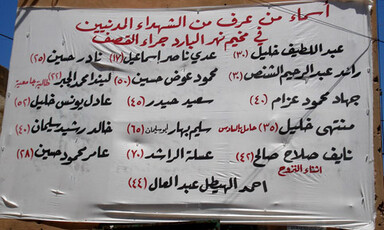 أسماء من عرف من الشهداء المدنيين
في مخيم نهر البارد جراء القصف
عبد اللطيف خليل (٣٠) عدي ناصر اسماعيل (١٧) نادر حسين (٢٥)
رائد عبد الرحيم الشنص (٣٠) محمود عوض حسين (٥٠) ليندا احمد الجبر (٢٢) طالبة جامعية
جهاد محمود عزام (٤٠) سعيد حيدر (٤٥) عادل يونس خليل (٥٢)
منتهى خليل (٣٥) حامل بالسادس سليم بهار ابو سليمان (٦٥) خالد رشيد سليمان (٤٠)
نايف صلاح صالح (٤٢) اثناء النزوح عسلة الراشد (٧٠) عامر محمود حسين (٢٨)
احمد الهيطل عبد العال (٤٤)